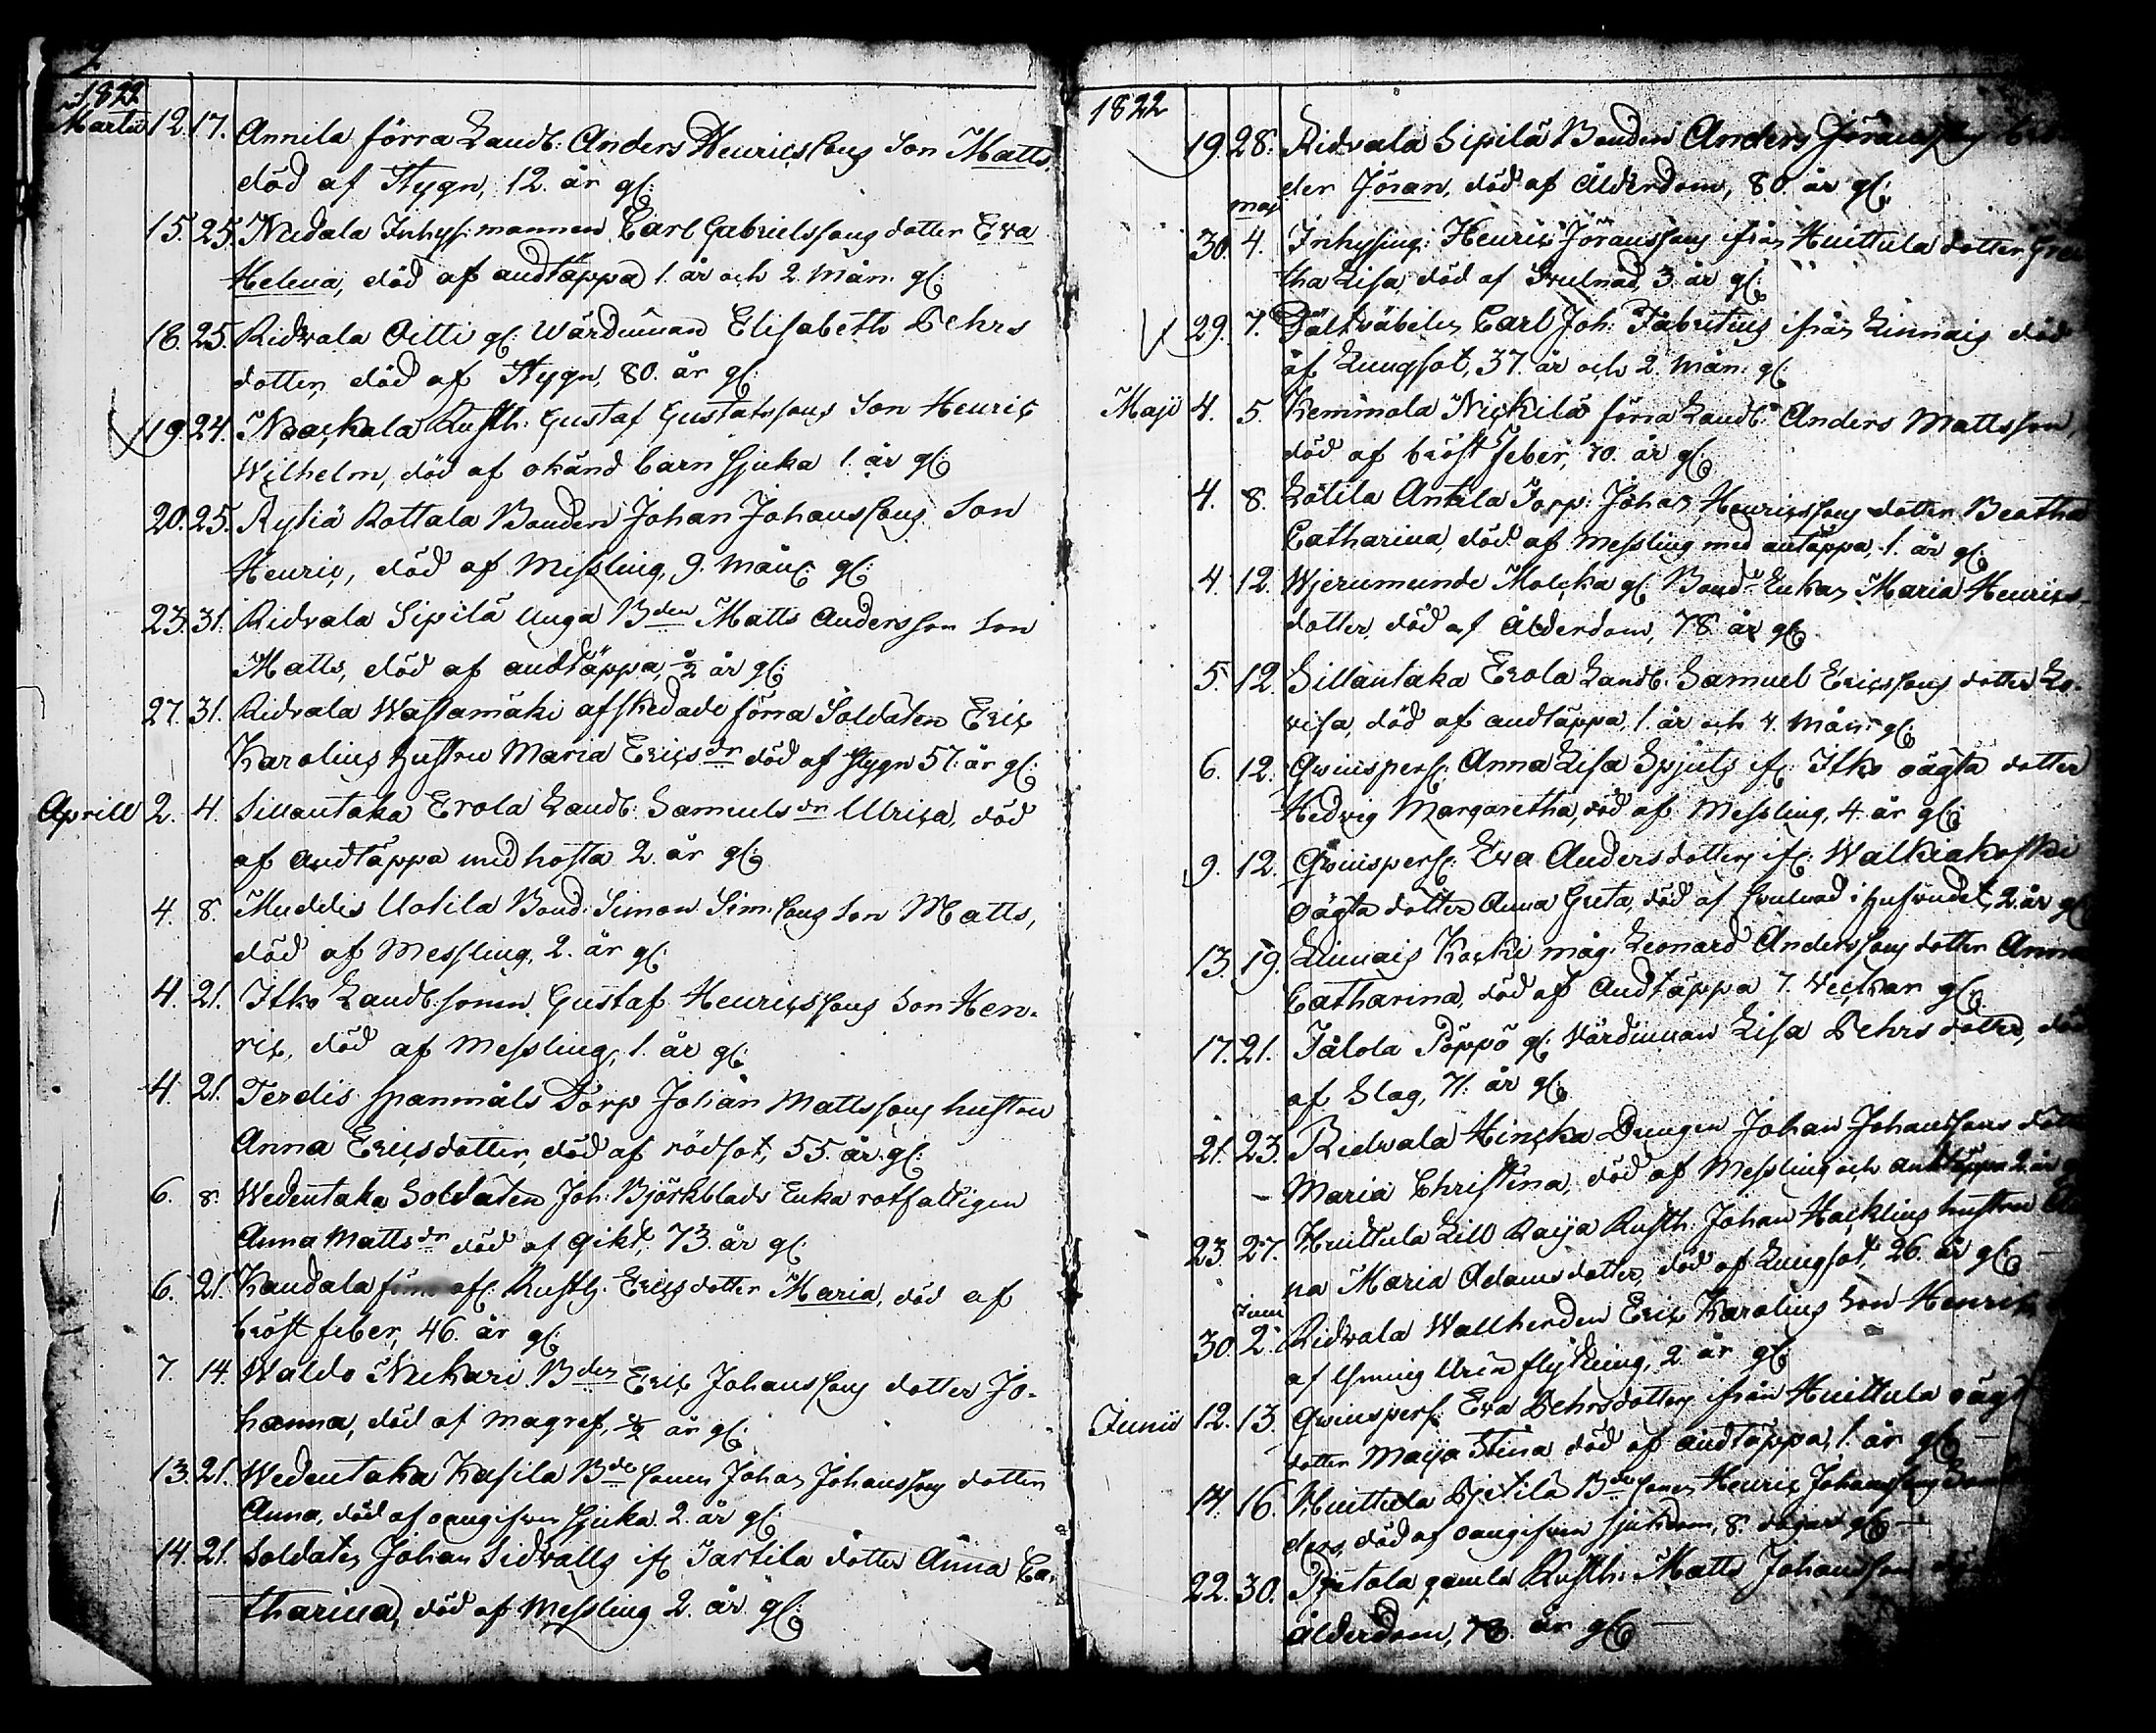 1822
Martii 12. 17. Annila förra Landb: Anders Henricssons Son Matts,
död af Stygn, 12. år gl:
15. 25. Nudala Inhys: mannen Carl Gabrielssons dotter Eva
Helena, död af andtäppa 1. år och 2. mån. gl:
18. 25. Ridvala Oitti gl: Wärdinnan Elisabeth Pehrs
dotter, död af Stygn, 80. år gl:
19. 24. Naackala Rusth: Gustaf Gustafssons Son Henric
Wilhelm, död af okänd barn sjuka 1. år gl:
20. 25. Kyliä Kottala Bonden Johan Johanssons Son
Henric, död af Messling, 9. mån: gl:
23. 31. Ridvala Sipilä unga Bden Matts Andersson Son
Matts, död af andtäppa, ½ år gl:
27. 31. Ridvala Wastamäki afskedade förra Soldaten Eric
Karolins hustru Maria Ericsdr död af stygn 57. år gl:
Aprill 2. 4. Sillantaka Erola Landb: Samuelsdr Ulrica, död
af Andtäppa med hosta 2. år gl:
4. 8. Muddis Uotila Bond: Simon Sim:sons Son Matts,
död af Messling, 2. år gl:
4. 21. Itko Landb:sonen Gustaf Henricssons Son Hen-
ric, död af Messling, 1. år gl:
4. 21. Terdis spanmåls Torp Johan Mattssons hustru
Anna Ericsdotter, död af rödsot, 55. år gl:
6. 8. Wedentaka Soldaten Joh: Björkblads Enka rotfattigen
Anna Mattsdr död af Gikt, 73. år gl:
6. 21. Kaudala afl: Rusth: Ericsdotter Maria, död af
bröst feber, 46. år gl:
7. 14. Waldo Nukari Bden Eric Johanssons dotter Jo-
hanna, död af magref, ½ år gl:
13. 21. Wedentaka Kasila Bde sonen Johan Johanssons dotter
Anna, död af oangifven sjuka 2. år gl:
14. 21. Soldaten Johan Sidvalls if: Jartila dotter Anna Ca-
tharina, död af Messling 2. år gl:
1822
19. 28. Ridvala Sipilä Bonden Anders Jöranssons
der Jöran, död af Ålderdom, 80. år gl:
maj
30. 4. Inhysing: Henric Jöranssons ifrån Huittula dotter Gre
tha Lisa, död af Svulnad, 3. år gl:
29. 7. Fältväbeln Carl Joh: Fabritius ifrån Linnais död
af Lungsot, 37. år och 2. mån: gl:
Maji 4. 5. Kemmola Nickilä förra Landb: Anders Mattsson,
död af bröst Feber, 70. år gl:
4. 8. Lötila Antila Torp: Johan Henricssons dotter Beatha
Catharina, död af Messling med antäppa, 1. år gl:
4. 12. Wjerumunde Molcka gl: Bond Enkan Maria Henrics-
dotter, död af Ålderdom, 78. år gl:
5. 12. Sillantaka Erola Landb: Samuel Ericssons dotter Lo-
visa, död af andtäppa, 1. år och 4. mån: gl:
6. 12. Qwinspers: Anna Lisa Spjuts if: Itko oägta dotter
Hedvig Margaretha, död af Messling, 4. år gl:
9. 12. Qwinspers: Eva Andersdotters if: Walkiakoski
oägta dotter Anna Greta, död af Svulnad i hufvudet, 2. år gl:
13. 19. Linnais Koski måg: Leonard Anderssons dotter Anna
Catharina, död af Andtäppa 7. veckor gl:
17. 21. Jälola Pöppö gl: Värdinnan Lisa Pehrsdotter, död
af Slag, 71. år gl:
21. 23. Ridvala Hincka Drengen Johan Johanssons dotter
Maria Christina, död af Messling och andtäppa 2. år
23. 27. Huittula Lill Raija Rusth: Johan Hacklins hustru
na Maria Adamsdotter, död af Lungsot, 26. år gl:
Juni
30. 2. Ridvala Wallherden Eric Karolins Son Henric
af Ymnig Urin flytning, 2. år gl:
Junii 12. 13. Qwinspers: Eva Pehrsdotters ifrån Huittula oägt
dotter Maija Stina död af andtäppa, 1. år gl:
14. 16. Huittula Pjetilä Bde sonen Henric Johanssons Son
ders, död af oangifven sjukdom, 8. dagar gl:
22. 30. Pjetola gamla Rusth: Matts Johansson
Ålderdom, 78. år gl: